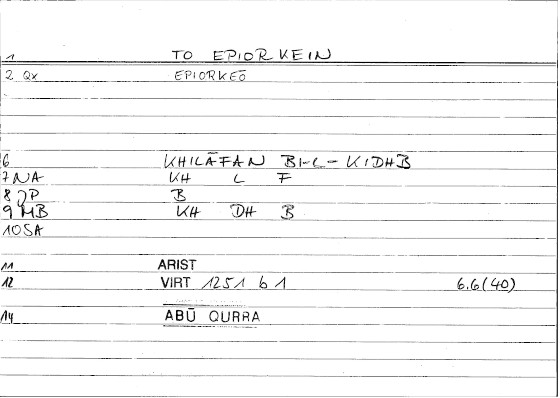 1 TO EPIORKEIN
2 Qx EPIORKEŌ
6 KHILĀFAN BI-L-KIDHB
7 NA KH L F
8 JP B
9 MB KH DH B
10 SA
11 ARIST
12 VIRT 1251 b 1 6.6(40)
14 ABŪ QURRA